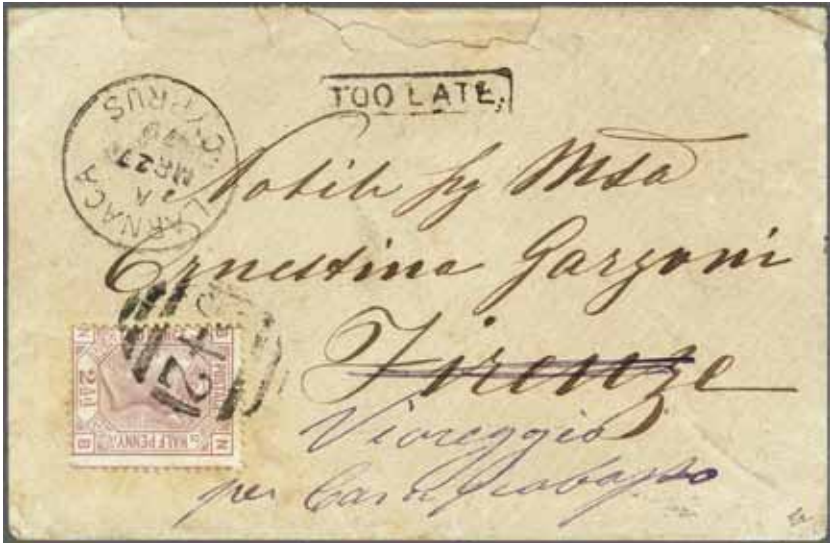 TOO LATE
LARNACA
A
MR 27
79
CYPRUS
Nobile Sg
Ernestina Garzoni
Firenze
Viareggio
per
942
POSTAGE
2½
HALF PENNY
N B
B N